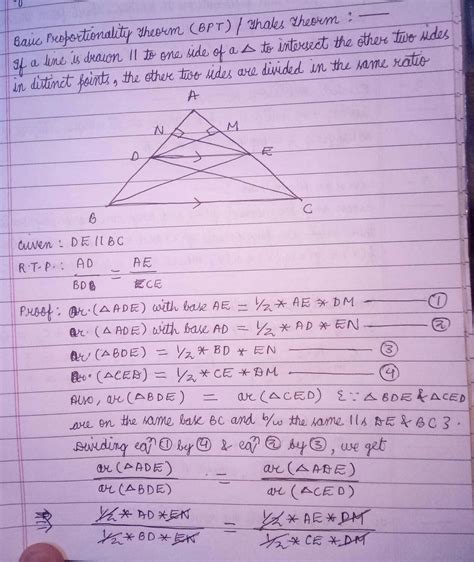 Basic Proportionality Theorem (BPT) / Thales Theorem : —
If a line is drawn || to one side of a Δ to intersect the other two sides
in distinct points, the other two sides are divided in the same ratio
A
N M
D E
B C
Given : DE || BC
R.T.P. : AD/BD = AE/CE
Proof : ar.(ΔADE) with base AE = 1/2 * AE * DM — ①
ar.(ΔADE) with base AD = 1/2 * AD * EN — ②
ar(ΔBDE) = 1/2 * BD * EN — ③
ar.(ΔCED) = 1/2 * CE * DM — ④
Also, ar(ΔBDE) = ar(ΔCED) {∵ ΔBDE & ΔCED
are on the same base BC and b/w the same ||s DE & BC}.
Dividing eqⁿ ① by ④ & eqⁿ ② by ③, we get
ar(ΔADE)/ar(ΔBDE) = ar(ΔADE)/ar(ΔCED)
⇒ 1/2 * AD * EN / 1/2 * BD * EN = 1/2 * AE * DM / 1/2 * CE * DM